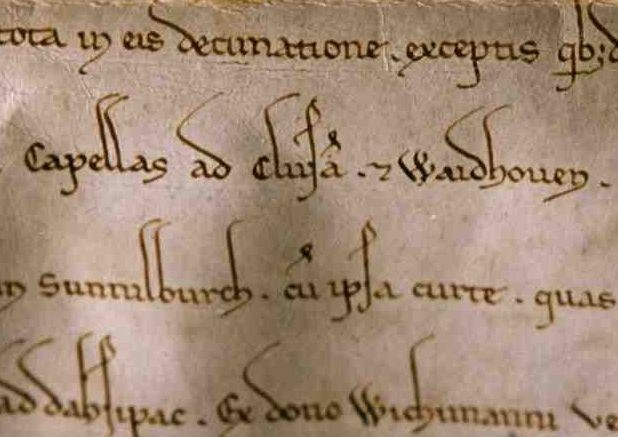 tota in eis decimatione. exceptis qb;
Capellas ad Clusā. ⁊ Waidhouen.
Sunnilburch. cū ipsa curte. quas
ad dabsipac. Ex dono Wichmanni